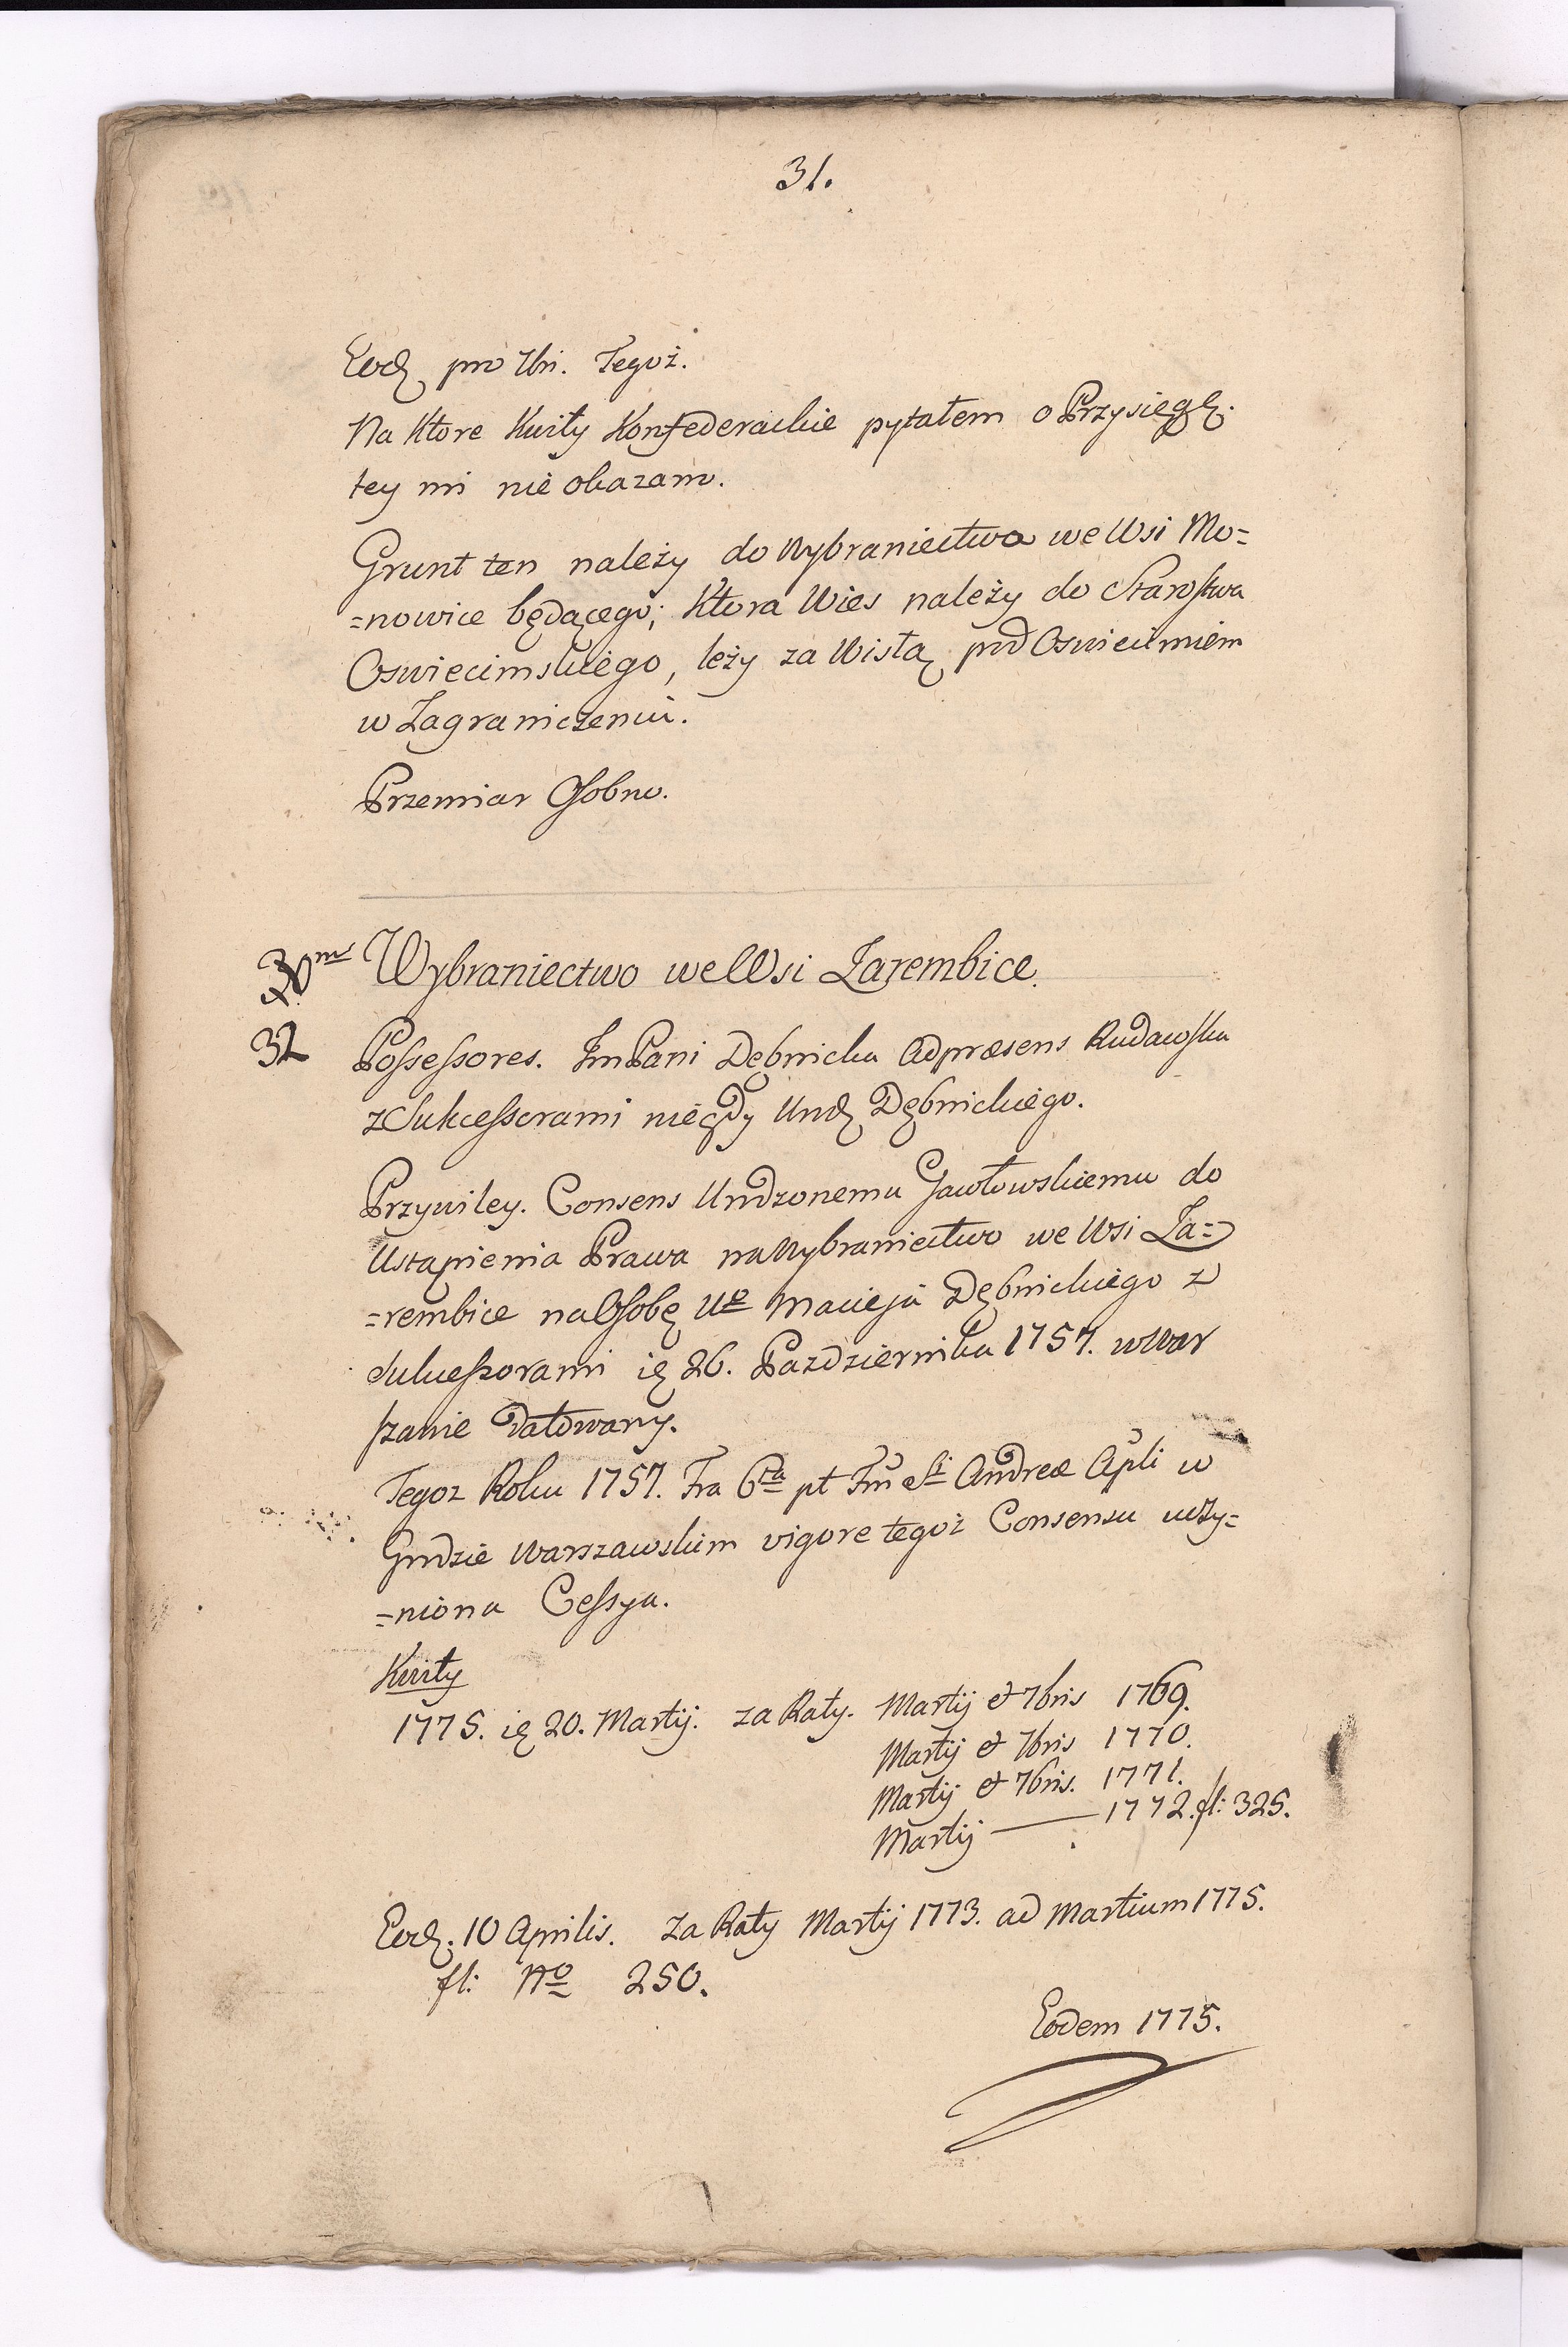 31.
Eod. pro 7bri. Tegoż.
Na Ktore Kwity Konfederackie pytałem o Przysięgę.
tey mi nie okazano.
Grunt ten należy do Wybraniectwa we Wsi Mo=
=nowice będącego; Ktora Wies należy do Starostwa
Oswiecimskiego, leży za Wisłą pod Oswiecimiem
w Zagraniczeniu.
Przemiar Osobno.
Wybraniectwo we Wsi Zarembice.
32 Possessores. ImPani Dębnicka ad præsens Rudawska
z Sukcessorami niegdy Urod. Dębnickiego.
Przywiley. Consens Urodzonemu Gawłowskiemu do
Ustąpienia Prawa na Wybraniectwo we Wsi Za=
=rembice na Osobę Uo Macieja Dębnickiego z
Sukcessorami ię 26. Pazdziernika 1757. w War
szawie Datowany.
Tegoz Roku 1757. Fra 6ta pt Fm Sti Andreæ Apli w
Grodzie Warszawskim vigore tegoż Consensu uczy=
=niona Cessya.
Kwity
1775. ię 20. Martij. za Raty. Martij et 7bris 1769.
Martij et 7bris 1770.
Martij et 7bris. 1771.
Martij — 1772. fl: 325.
Eod. 10 Aprilis. za Raty Martij 1773. ad Martium 1775.
fl: No 250.
Eodem 1775.